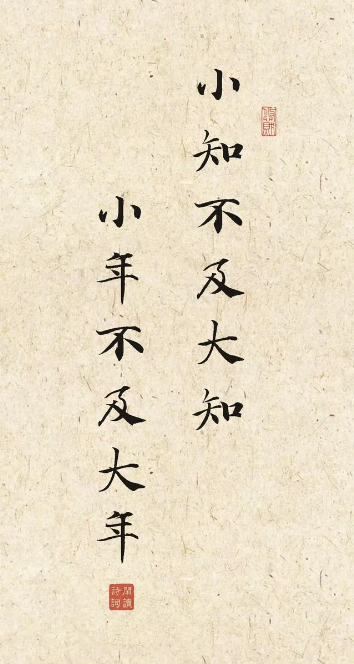 小知不及大知
小年不及大年